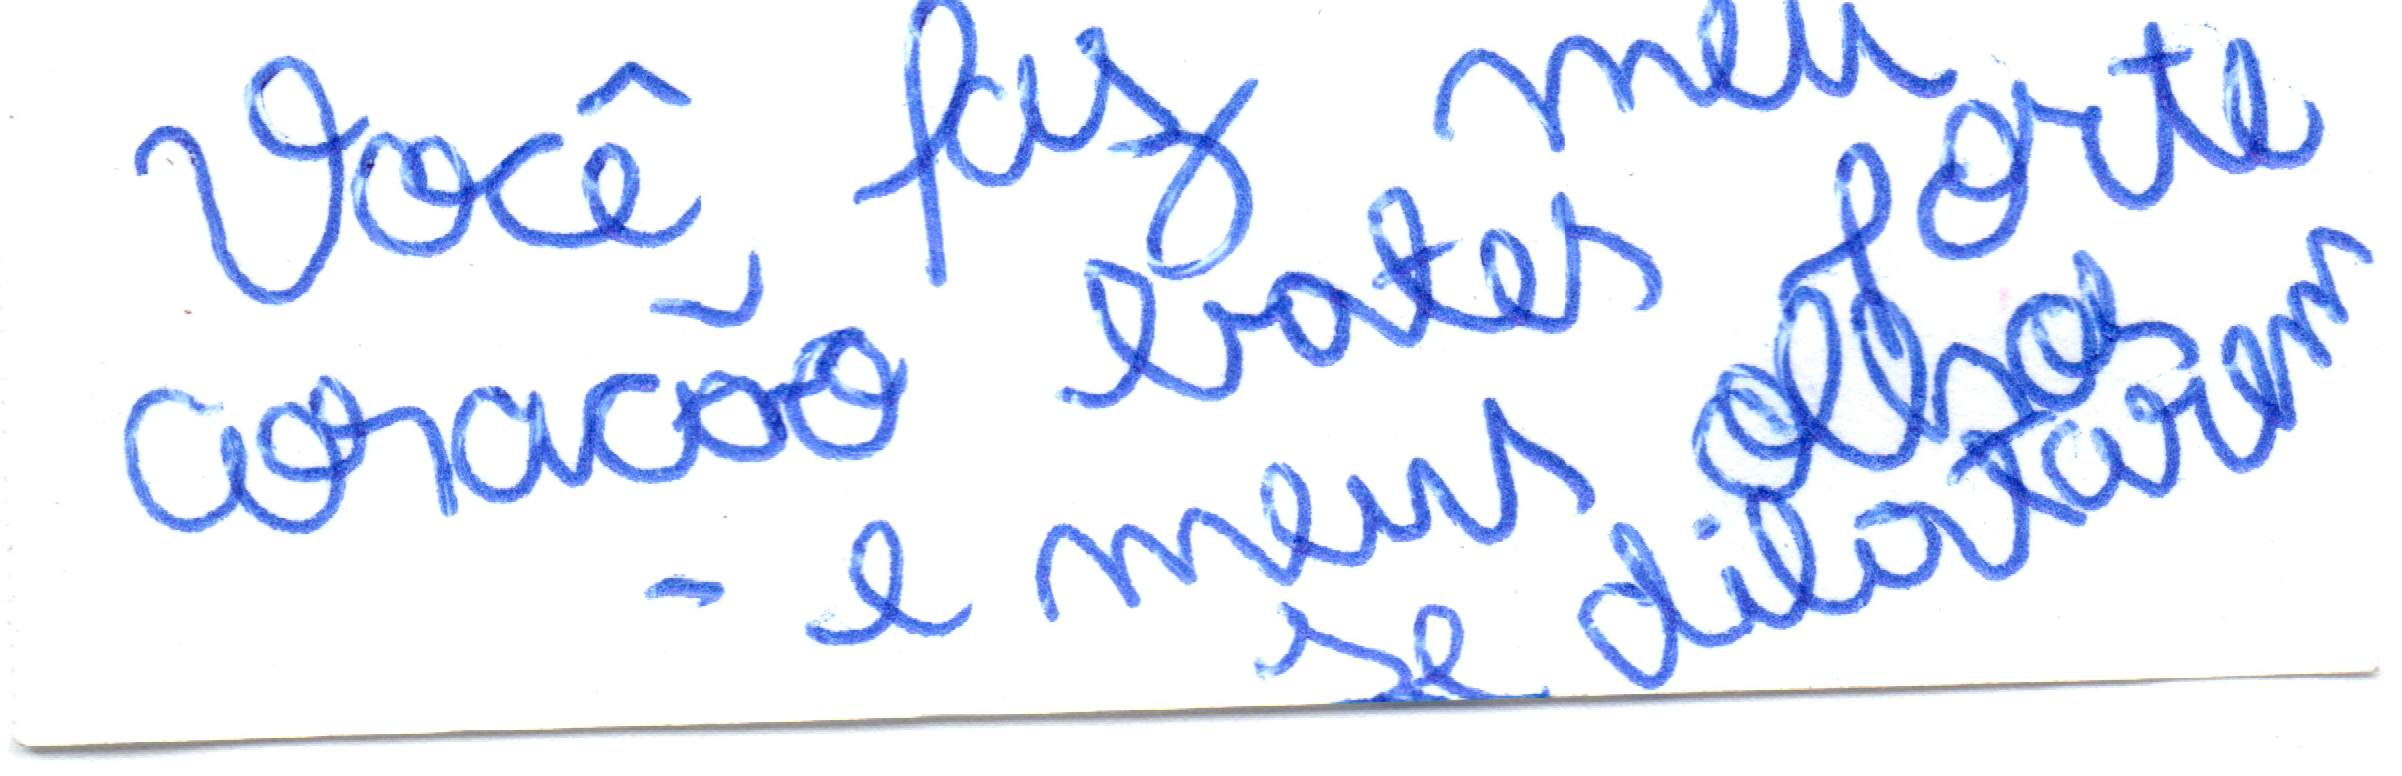 Você faz meu
coracão bater forte
- e meus olhos
se dilatarem